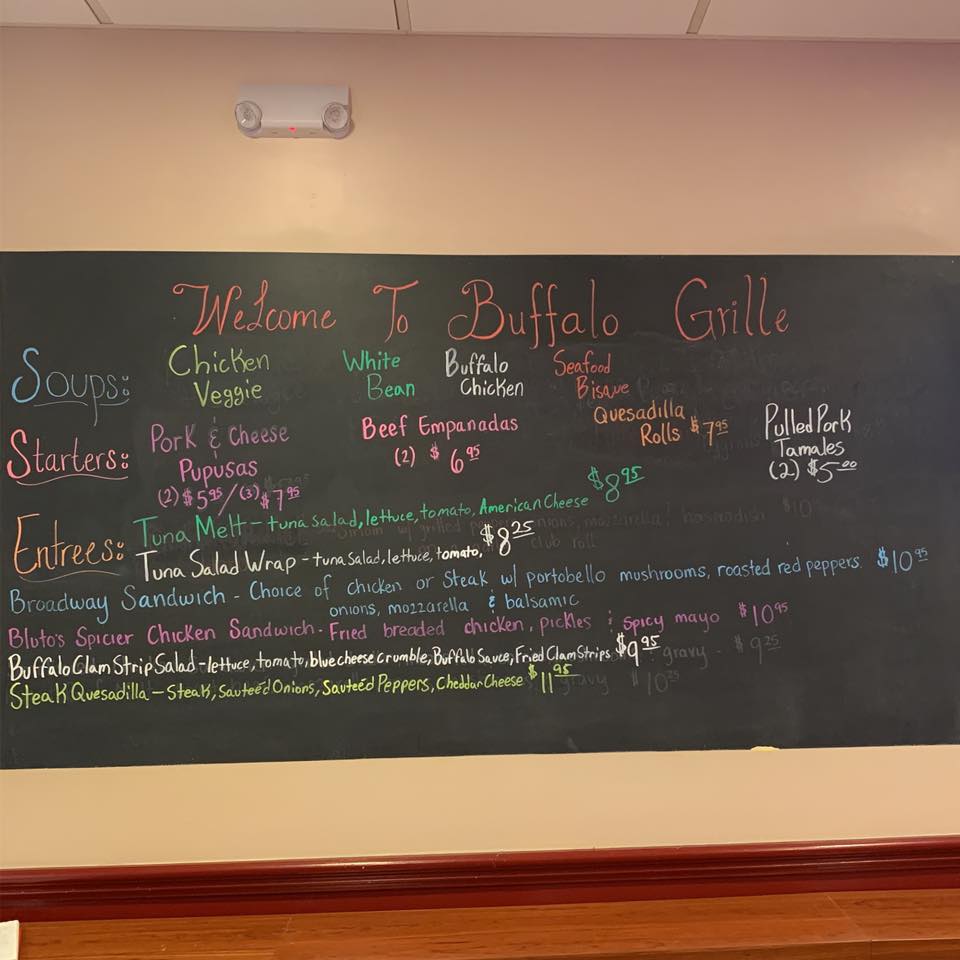 Welcome To Buffalo Grille
Soups:
Chicken
Veggie
White
Bean
Buffalo
Chicken
Seafood
Bisque
Starters:
Pork & Cheese
Pupusas
(2) $5.95/(3) $7.95
Beef Empanadas
(2) $6.95
Quesadilla
Rolls $7.95
Pulled Pork
Tamales
(2) $5.00
Entrees:
Tuna Melt - tuna salad, lettuce, tomato, American Cheese $8.95
Tuna Salad Wrap - tuna salad, lettuce, tomato, $8.25
Broadway Sandwich - Choice of chicken or steak w/ portobello mushrooms, roasted red peppers $10.95
onions, mozzarella & balsamic
Bluto's Spicier Chicken Sandwich - Fried breaded chicken, pickles & spicy mayo $10.95
Buffalo Clam Strip Salad - lettuce, tomato, blue cheese crumble, Buffalo Sauce, Fried Clam Strips $9.95
Steak Quesadilla - Steak, Sauteéd Onions, Sauteéd Peppers, Cheddar Cheese $11.95